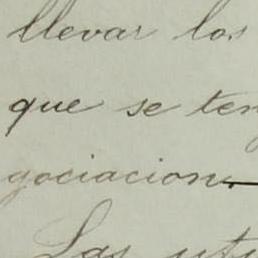 llevar los
que se ten
gociacion.
Las uti